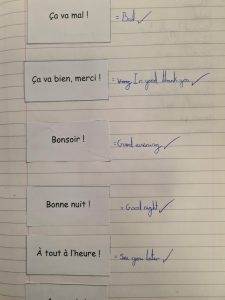 Ça va mal ! = Bad ✓
Ça va bien, merci ! = I'm good thank you ✓
Bonsoir ! = Good evening ✓
Bonne nuit ! = Good night ✓
À tout à l'heure ! = See you later ✓